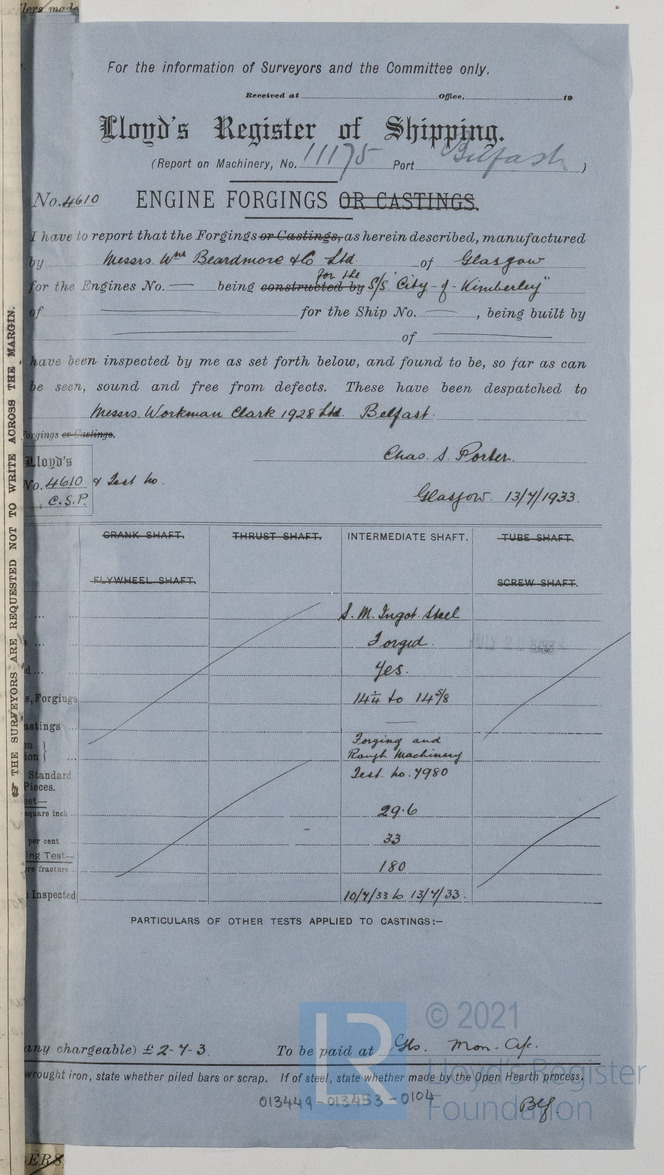 For the information of Surveyors and the Committee only.
Received at Office, 19
Lloyd's Register of Shipping.
(Report on Machinery, No. 11175 Port Belfast )
No. 4610 ENGINE FORGINGS OR CASTINGS.
I have to report that the Forgings or Castings, as herein described, manufactured
by Messrs. Wm Beardmore & Co Ltd. of Glasgow
for the Engines No. — being constructed by for the S/S "City-of-Kimberley"
of for the Ship No. — , being built by
of
have been inspected by me as set forth below, and found to be, so far as can
be seen, sound and free from defects. These have been despatched to
Messrs. Workman Clark 1928 Ltd. Belfast.
Forgings or Castings.
Chas. S. Porter.
Lloyd's
No. 4610 & Test No.
C.S.P.
Glasgow. 13/7/1933.
CRANK SHAFT. THRUST SHAFT. INTERMEDIATE SHAFT. TUBE SHAFT.
FLYWHEEL SHAFT. SCREW SHAFT.
S. M. Ingot Steel
Forged.
Yes.
s, Forgings 14 1/4 to 14 5/8
astings —
on } ion } Forging and
Rough Machinery
Standard Test No. 7980
Pieces.
est—
square inch 29.6
per cent 33
ng Test—
re fracture 180
Inspected 10/7/33 to 13/7/33.
PARTICULARS OF OTHER TESTS APPLIED TO CASTINGS:—
any chargeable) £ 2-7-3. To be paid at Gls. Mon. A/c.
wrought iron, state whether piled bars or scrap. If of steel, state whether made by the Open Hearth process.
013449-013453-0104
THE SURVEYORS ARE REQUESTED NOT TO WRITE ACROSS THE MARGIN.
ERS
© 2021
LR
Lloyd's Register
Foundation